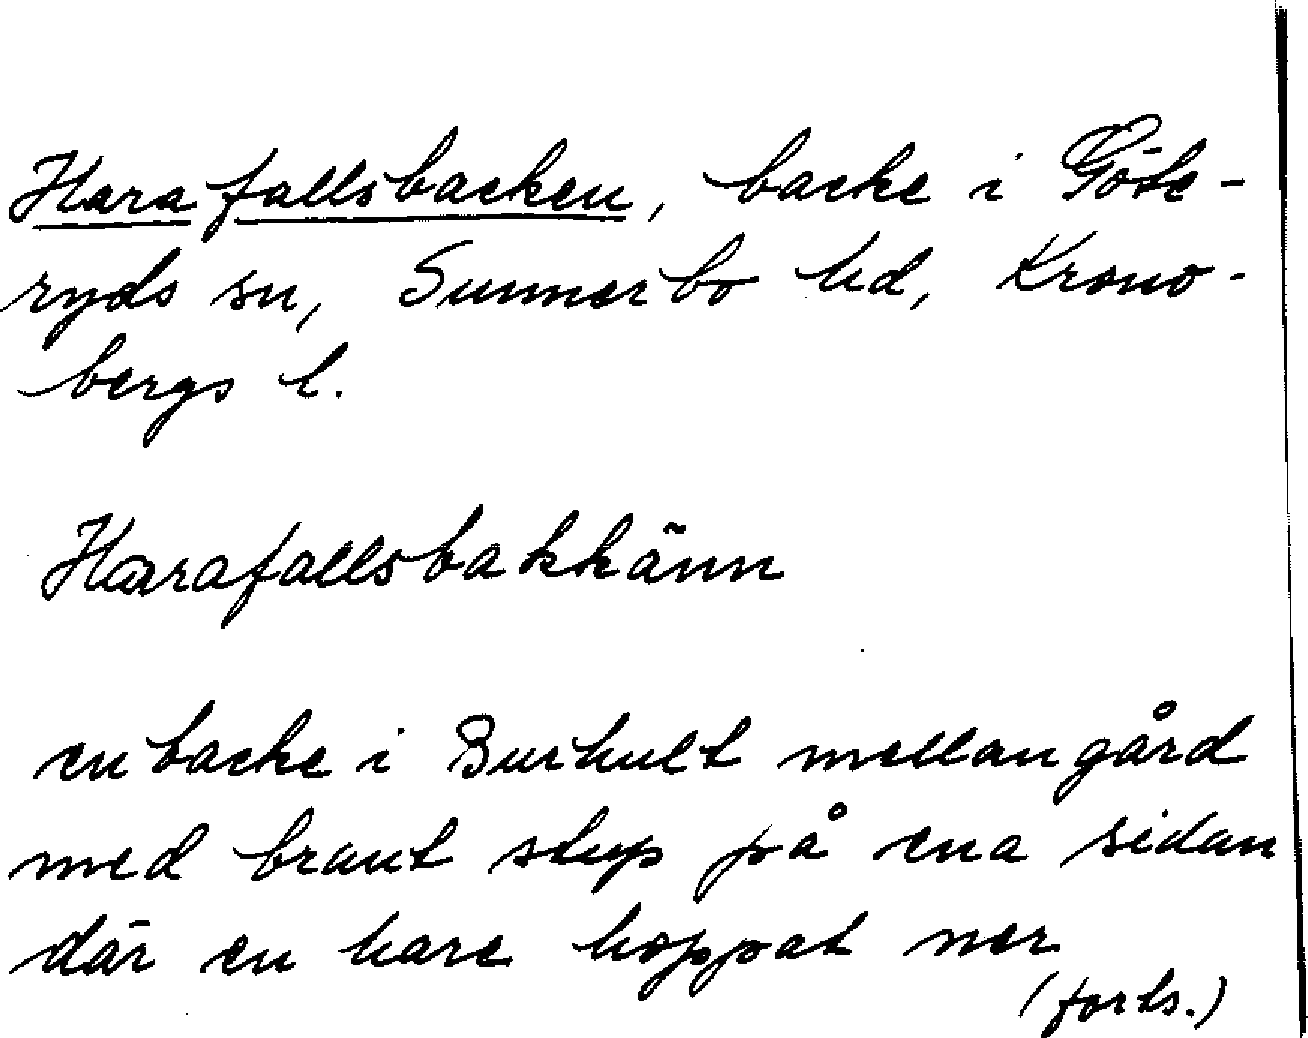 Harafallsbacken, backe i Göte-
ryds sn, Sunnerbo hd, Krono-
bergs l.
Harafallsbakkänn
en backe i Burhult mellangård
med brant stup på ena sidan
där en hare hoppat ner
(forts.)